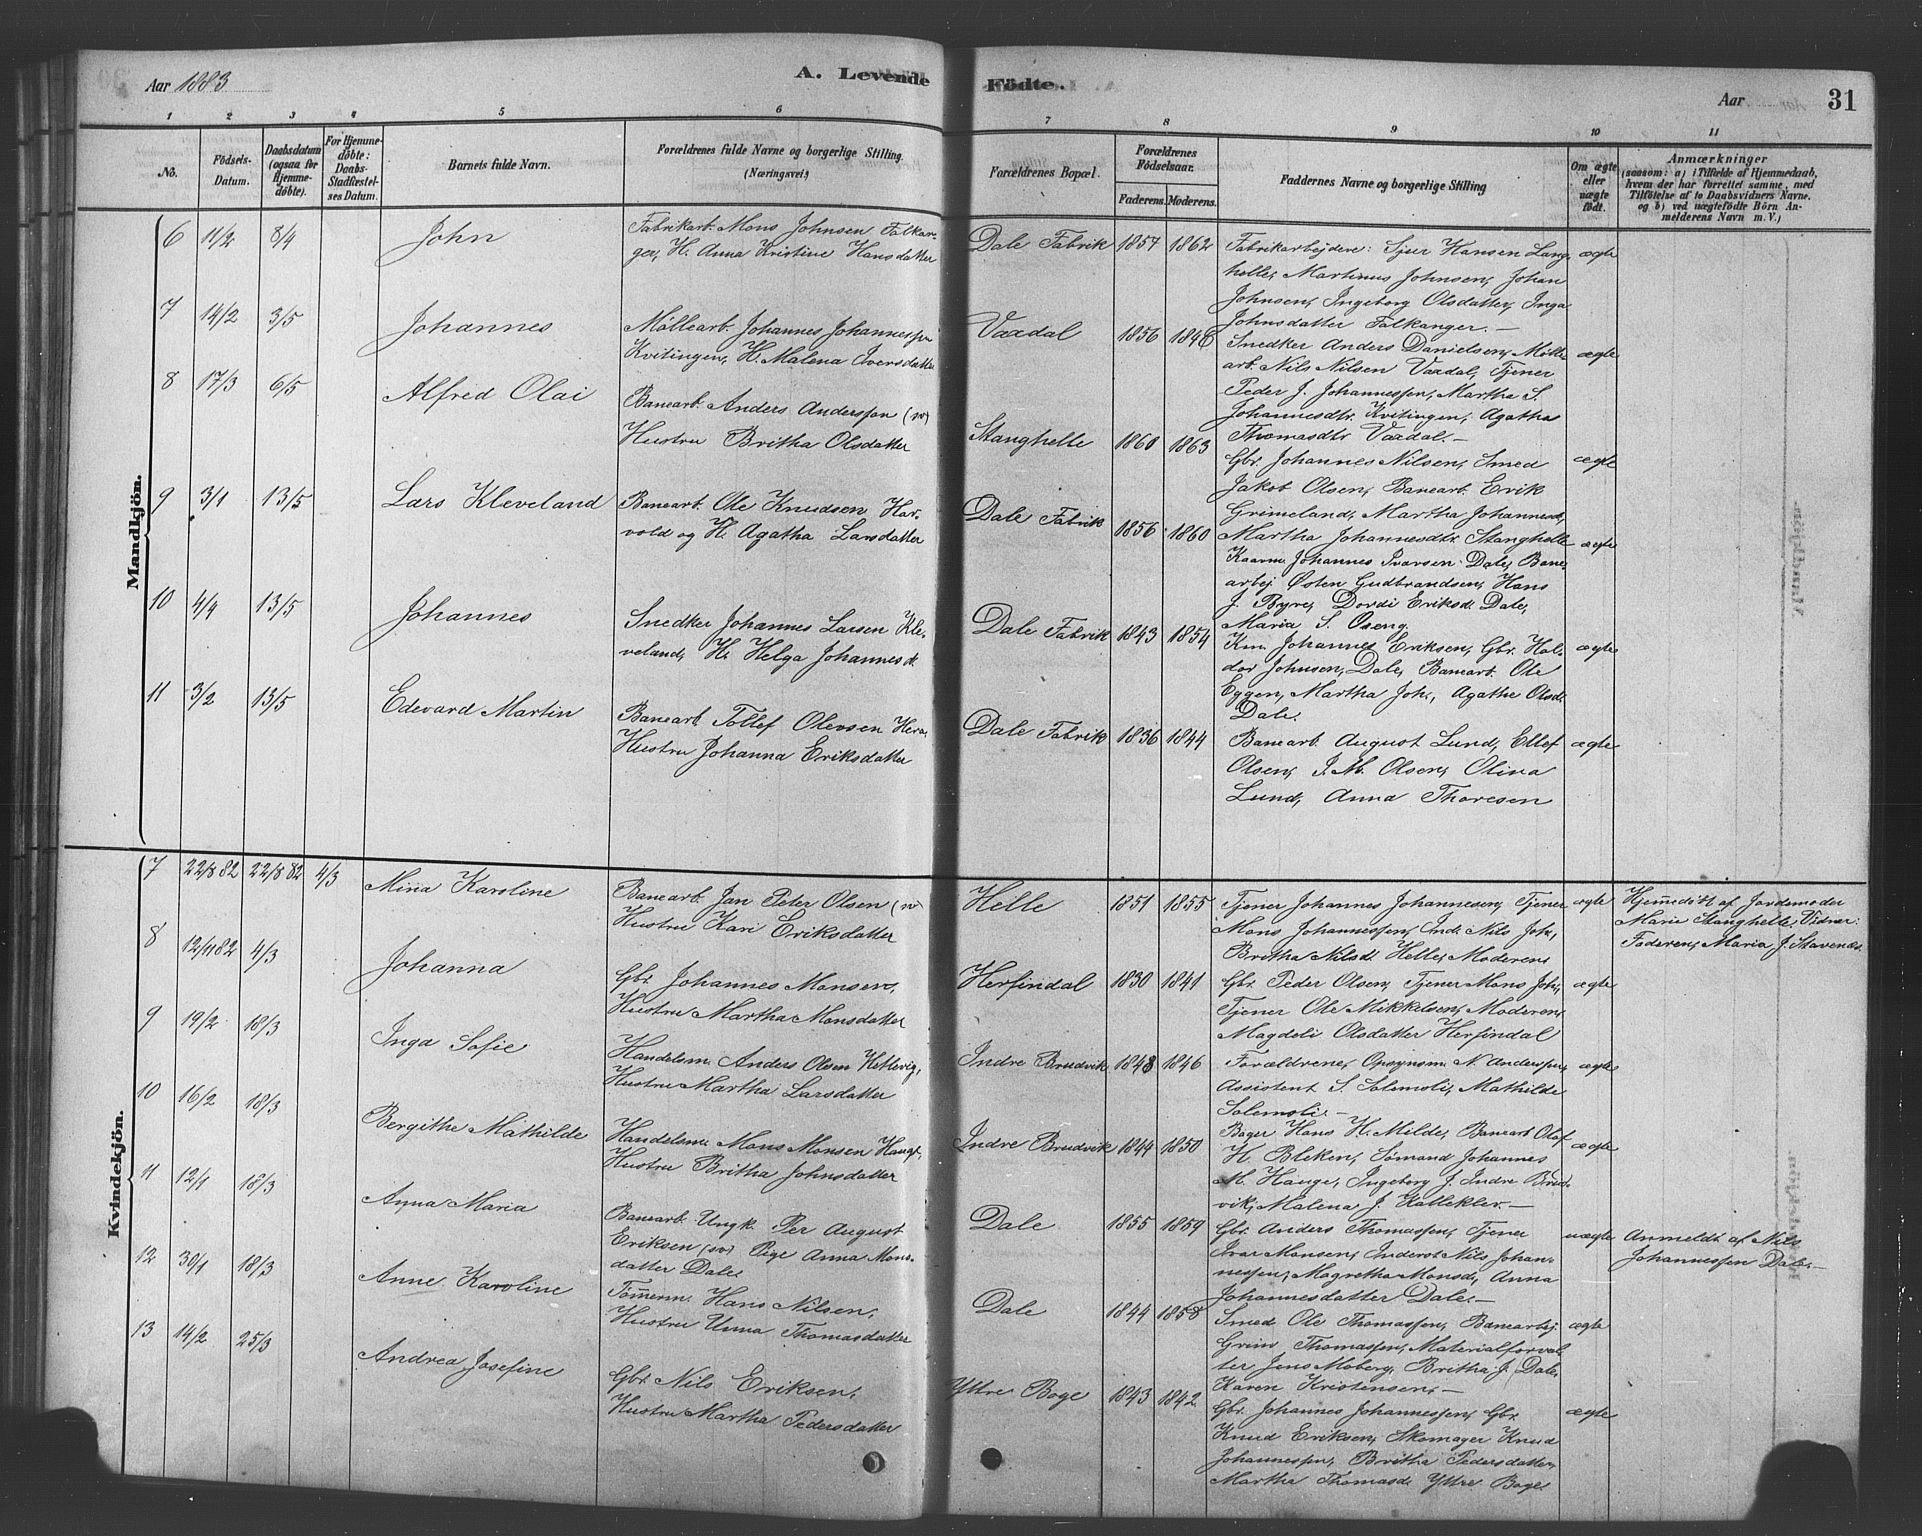 Aar 1883
A. Levende
Födte.
Aar
31
1 2 3 4 5 6 7 8 9 10 11
No.
Födsels-Datum.
Daabsdatum (ogsaa for Hjemmedöbte).
For Hjemmedöbte: Daabs-Stadfæstelses Datum.
Barnets fulde Navn.
Forældrenes fulde Navne og borgerlige Stilling. (Næringsvei.)
Forældrenes Bopæl.
Forældrenes Födselsaar.
Faderens. Moderens.
Faddernes Navne og borgerlige Stilling
Om ægte eller uægte födt.
Anmærkninger
(saasom: a) i Tilfælde af Hjemmedaab, hvem der har forrettet samme, med Tilföielse af to Daabsvidners Navne, og b) ved uægtefödte Börn Anmelderens Navn m. V.)
Mandkjön.
6 11/2 8/4 John
Fabrikarb. Mons Johnsen Falkan-
ger, H. Anna Kristine Hansdatter
Dale Fabrik 1857 1862
Fabrikarbejdere: Sjur Hansen Lang-
helle, Martinus Johnsen, Johan
Johnsen, Ingeborg Olsdatter, Inga
Johnsdatter Falkanger.—
ægte
7 14/2 3/5 Johannes
Møllearb. Johannes Johannessen
Kvitingen, H. Malena Iversdatter
Vaxdal 1856 1846
Snedker Anders Danielsen, Mølle-
arb. Nils Nilsen Vaxdal, Tjener
Peder J. Johannessen, Martha S.
Johannesdtr. Kvitingen, Agatha
Thomasdtr Vaxdal.—
ægte
8 17/3 6/5 Alfred Olai
Banearb. Anders Anderssen (sv)
Hustru Britha Olsdatter
Stanghelle 1860 1863
Gbr. Johannes Nilsen, Smed
Jakob Olsen, Banearb. Ervik
Grimeland, Martha Johannesd,
Martha Johannesdtr. Stanghelle
ægte
9 3/1 13/5 Lars Kleveland
Banearb. Ole Knudsen Har-
vold og H. Agatha Larsdatter
Dale Fabrik 1856 1860
Kaarm. Johannes Ivarsen Dale, Bane-
arbej. Østen Gudbrandsen, Hans
J. Byre, Dordi Eriksd. Dale,
Maria S. Oseng.
ægte
10 4/4 13/5 Johannes
Snedker Johannes Larsen Kle-
veland, H. Helga Johannesd.
Dale Fabrik 1843 1854
Km. Johannes Eriksen, Gbr. Hal-
dor Johnsen, Dale, Banearb. Ole
Eggen, Martha Joh., Agathe Olsd.
Dale.
ægte
11 3/2 13/5 Edevard Martin
Banearb. Tollef Olevsen Hera,
Hustru Johanna Eriksdatter
Dale Fabrik 1836 1844
Banearb. August Lund, Ellef
Olsen, J. M. Olsen, Olina
Lund, Anna Thoresen
ægte
Kvindekjön.
7 22/8 82 22/8 82 4/3 Mina Karoline
Banearb. Jan Peter Olsen (sv
Hustru Kari Eriksdatter
Helle 1851 1855
Tjener Johannes Johannesen, Tjener
Mons Johannessen, Ind. Nils Joh.,
Britha Nilsd. Helle, Moderen
ægte
Hjemmedøbt af Jordemoder
Marie Stanghelle, Vidner:
Faderen, Maria J. Stavenes.
8 12/11 82 4/3 Johanna
Gbr. Johannes Monsen,
Hustru Martha Monsdatter
Herfindal 1830 1841
Gbr. Peder Olsen, Tjener Mons Joh.,
Tjener Ole Mikkelsen, Moderen,
Magdeli Olsdatter Herfindal
ægte
9 19/2 18/3 Inga Sofie
Handelsm. Anders Olsen Hettevig,
Hustru Martha Larsdatter
Indre Brudvik 1848 1846
Forældrene, Opsynsm. N. Anderssen,
Assistent S. Solemsli, Mathilde
Solemsli.—
ægte
10 16/2 18/3 Bergithe Mathilde
Handelsm. Mons Monsen Haugs,
Hustru Britha Johnsdatter
Indre Brudvik 1844 1850
Bager Hans H. Milde, Banearb. Olaf
H. Bleken, Sømand Johannes
M. Hauge, Ingeborg J. Indre Brud-
vik, Malena J. Kallekleiv.—
ægte
11 12/1 18/3 Anna Maria
Banearb. Ungk. Per August
Eriksen (sv) Pige Anna Mons-
datter Dale
Dale 1855 1859
Gbr. Anders Thomassen, Tjener
Ivar Monsen, Inderst Nils Johan-
nessen, Magretha Monsd, Anna
Johannesdatter Dale.—
uægte
Anmeldt af Nils
Johannessen Dale.—
12 30/1 18/3 Anne Karoline
Tømerm. Hans Nilsen,
Hustru Unna Thomasdatter
Dale 1844 1858
Smed Ole Thomassen, Banearbej.
Grim Thomassen, Materialforval-
ter Jens Moberg, Britha J. Dale,
Karen Kristensen,—
ægte
13 14/2 25/3 Andrea Josefine
Gbr. Nils Eriksen,
Hustru Martha Pedersdatter
Yttre Boge 1843 1842
Gbr. Johannes Johannessen, Gbr.
Knud Eriksen, Skomager Knud
Johannessen, Britha Pedersdatter,
Martha Thomasd. Yttre Boge.
ægte